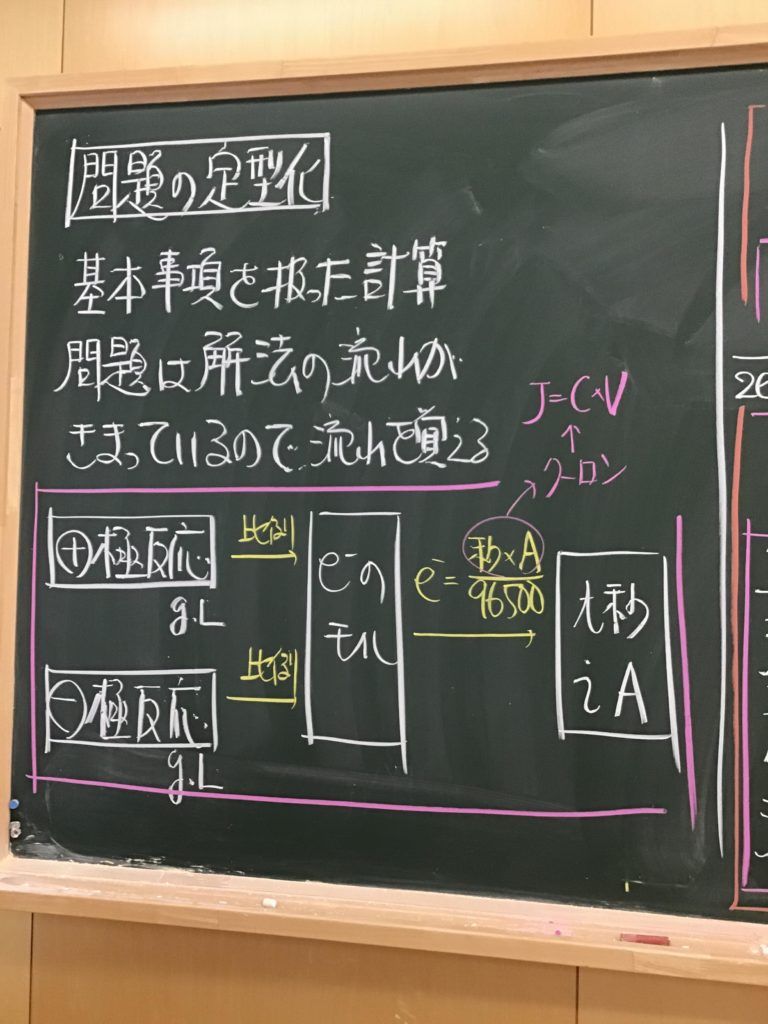 問題の定型化
基本事項を扱った計算
問題は解法の流れが
きまっているので流れを覚える
J=C×V
↑
クーロン
⊕極反応
g.L
比例
e⁻の
モル
e⁻= 秒×A
96500
t秒
i A
⊖極反応
g.L
比例
26